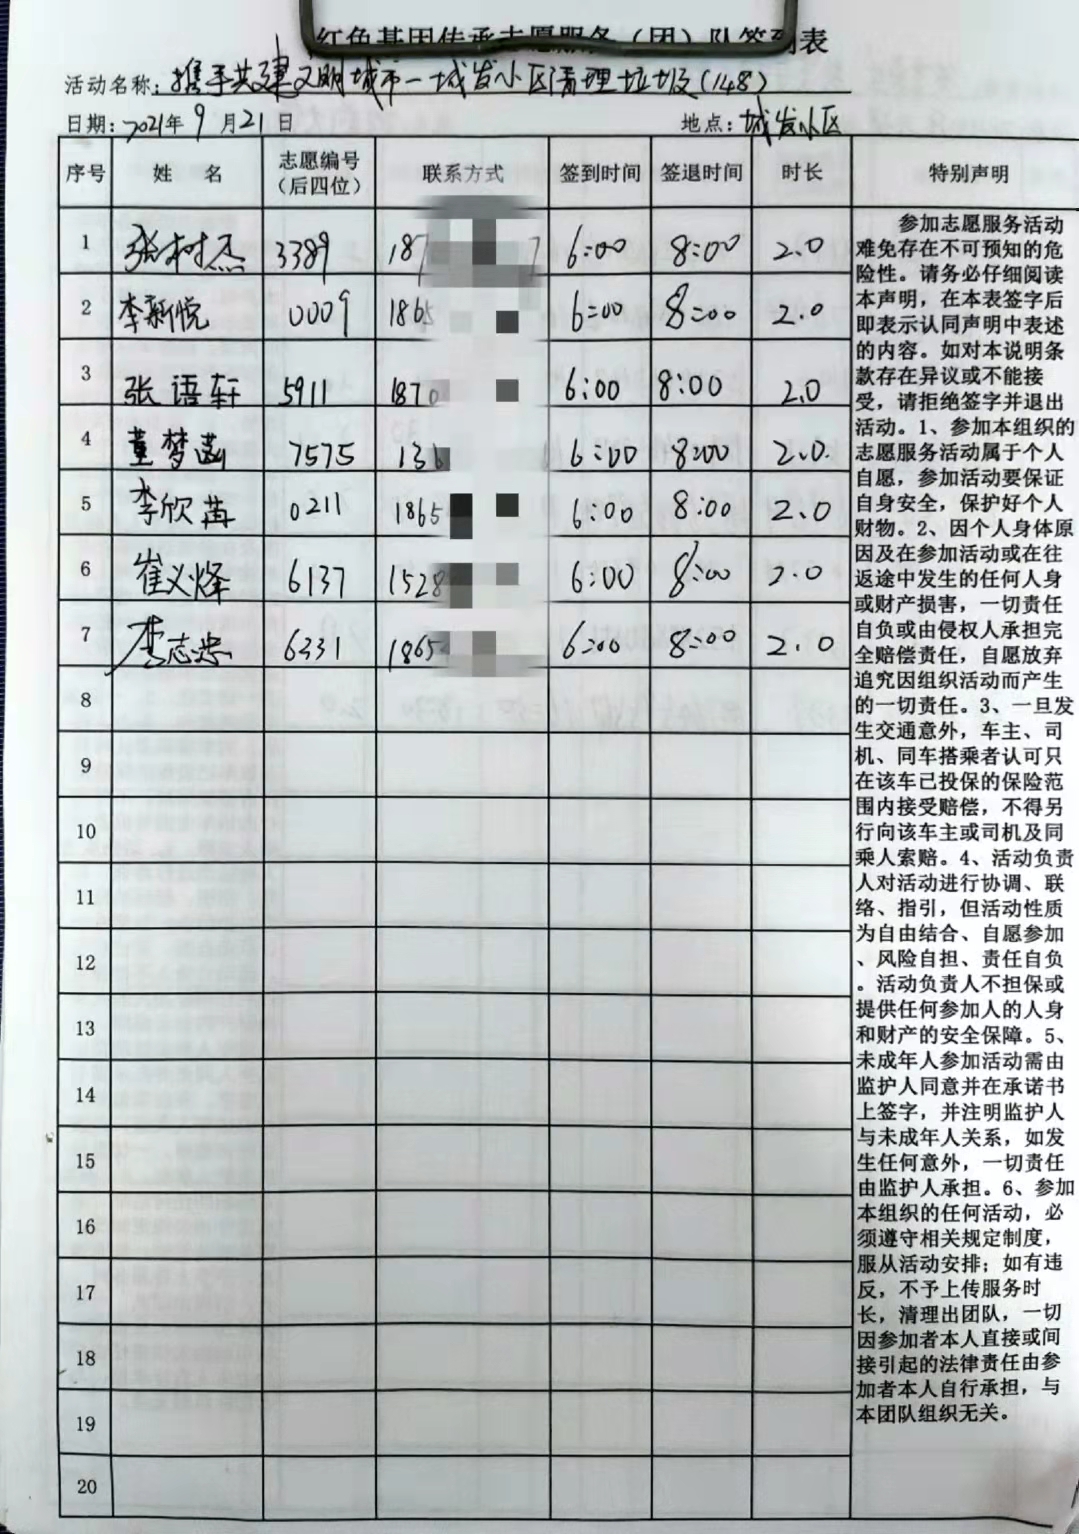 红色基因传承志愿服务（团）队签到表
活动名称：携手共建文明城市一城发小区清理垃圾（148）
日期：2021年9月21日 地点：城发小区
序号 姓名 志愿编号（后四位） 联系方式 签到时间 签退时间 时长 特别声明
1 张树杰 3389 187 7 6:00 8:00 2.0
2 李新悦 0009 1865 6:00 8:00 2.0
3 张语轩 5911 1870 6:00 8:00 2.0
4 董梦涵 7575 136 6:00 8:00 2.0
5 李欣苒 0211 1865 6:00 8:00 2.0
6 崔义烽 6137 1528 6:00 8:00 2.0
7 李志忠 6331 1865 6:00 8:00 2.0
8
9
10
11
12
13
14
15
16
17
18
19
20
参加志愿服务活动
难免存在不可预知的危
险性。请务必仔细阅读
本声明，在本表签字后
即表示认同声明中表述
的内容。如对本说明条
款存在异议或不能接
受，请拒绝签字并退出
活动。1、参加本组织的
志愿服务活动属于个人
自愿，参加活动要保证
自身安全，保护好个人
财物。2、因个人身体原
因及在参加活动或在往
返途中发生的任何人身
或财产损害，一切责任
自负或由侵权人承担完
全赔偿责任，自愿放弃
追究因组织活动而产生
的一切责任。3、一旦发
生交通意外，车主、司
机、同车搭乘者认可只
在该车已投保的保险范
围内接受赔偿，不得另
行向该车主或司机及同
乘人索赔。4、活动负责
人对活动进行协调、联
络、指引，但活动性质
为自由结合、自愿参加
、风险自担、责任自负
。活动负责人不担保或
提供任何参加人的人身
和财产的安全保障。5、
未成年人参加活动需由
监护人同意并在承诺书
上签字，并注明监护人
与未成年人关系，如发
生任何意外，一切责任
由监护人承担。6、参加
本组织的任何活动，必
须遵守相关规定制度，
服从活动安排；如有违
反，不予上传服务时
长，清理出团队，一切
因参加者本人直接或间
接引起的法律责任由参
加者本人自行承担，与
本团队组织无关。